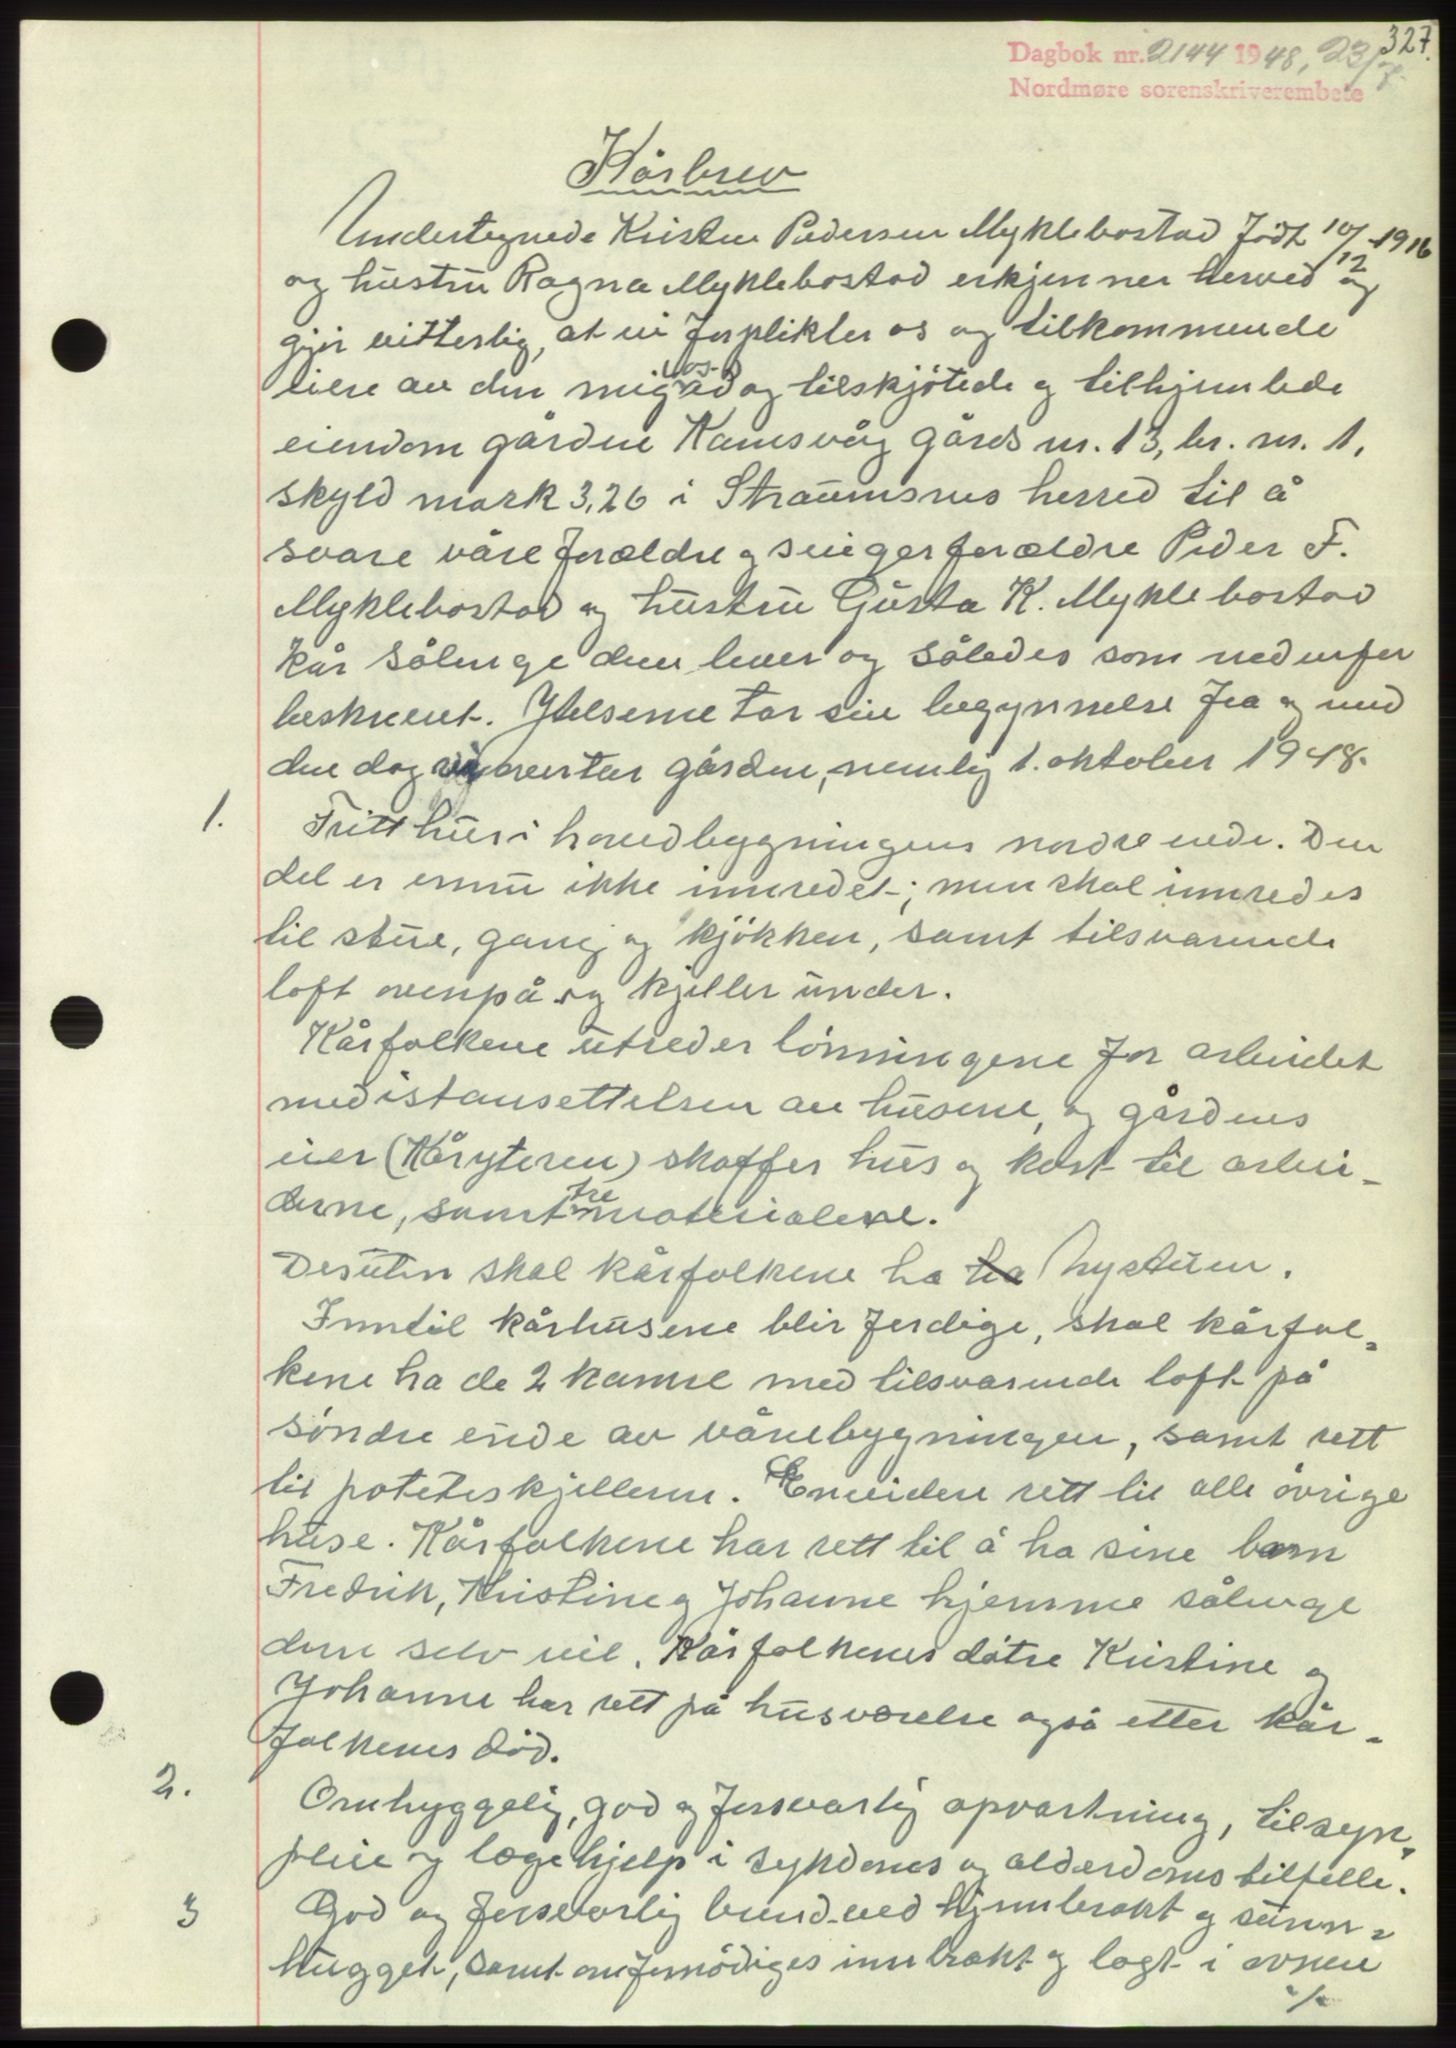 327.
Dagbok nr. 2144 1948, 23/7
Nordmøre sorenskriverembete
Kårbrev
Undertegnede Kristen Pedersen Myklebostad født 10/12-1916
og hustru Ragna Myklebostad erkjenner herved og
gjør vitterlig, at vi forplikter os og tilkommende
eiere av den mig ved og tilskjøtede og tilhjemlede
eiendom gården Kamsvåg gårds nr. 13, br. nr. 1,
skyld mark 3,26 i Straumsnes herred til å
svare våre forældre og svigerforældre Peder F.
Myklebostad og hustru Gusta K. Myklebostad
kår sålenge dem lever og således som nedenfor
beskrevet. Ytelserne tar sin begynnelse fra og med
den dag vi overtar gården, nemlig 1. oktober 1948.
1. Fritt hus i hovedbygningens nordre ende. Den
del er ennu ikke innredet; men skal innredes
til stue, gang og kjøkken, samt tilsvarende
loft ovenpå og kjeller under.
Kårfolkene utreder lønningene for arbeidet
med istansettelsen av husene, og gårdens
eier (Kåryteren) skaffer hus og kost til arbei-
derne, samt trematerialene.
Desuten skal kårfolkene ha ha nystuen.
Inntil kårhusene blir ferdige, skal kårfol-
kene ha de 2 kamre med tilsvarende loft på
søndre ende av vånebygningen, samt rett
til poteteskjelleren. Enveidere rett til alle øvrige
huse. Kårfolkene har rett til å ha sine barn
Fredrik, Kristine og Johanne hjemme sålenge
dem selv vil. Kårfolkenes døtre Kristine og
Johanne har rett på husværelse også etter kår-
folkenes død.
2. Omhyggelig, god og forsvarlig opvartning, tilsyn,
pleie og lægehjelp i sykdoms og alderdoms tilfelle.
3 God og forsvarlig brendeved hjembrakt og smm-
hugget, samt om fornødiges innbrakt og lagt i ovnen
./.